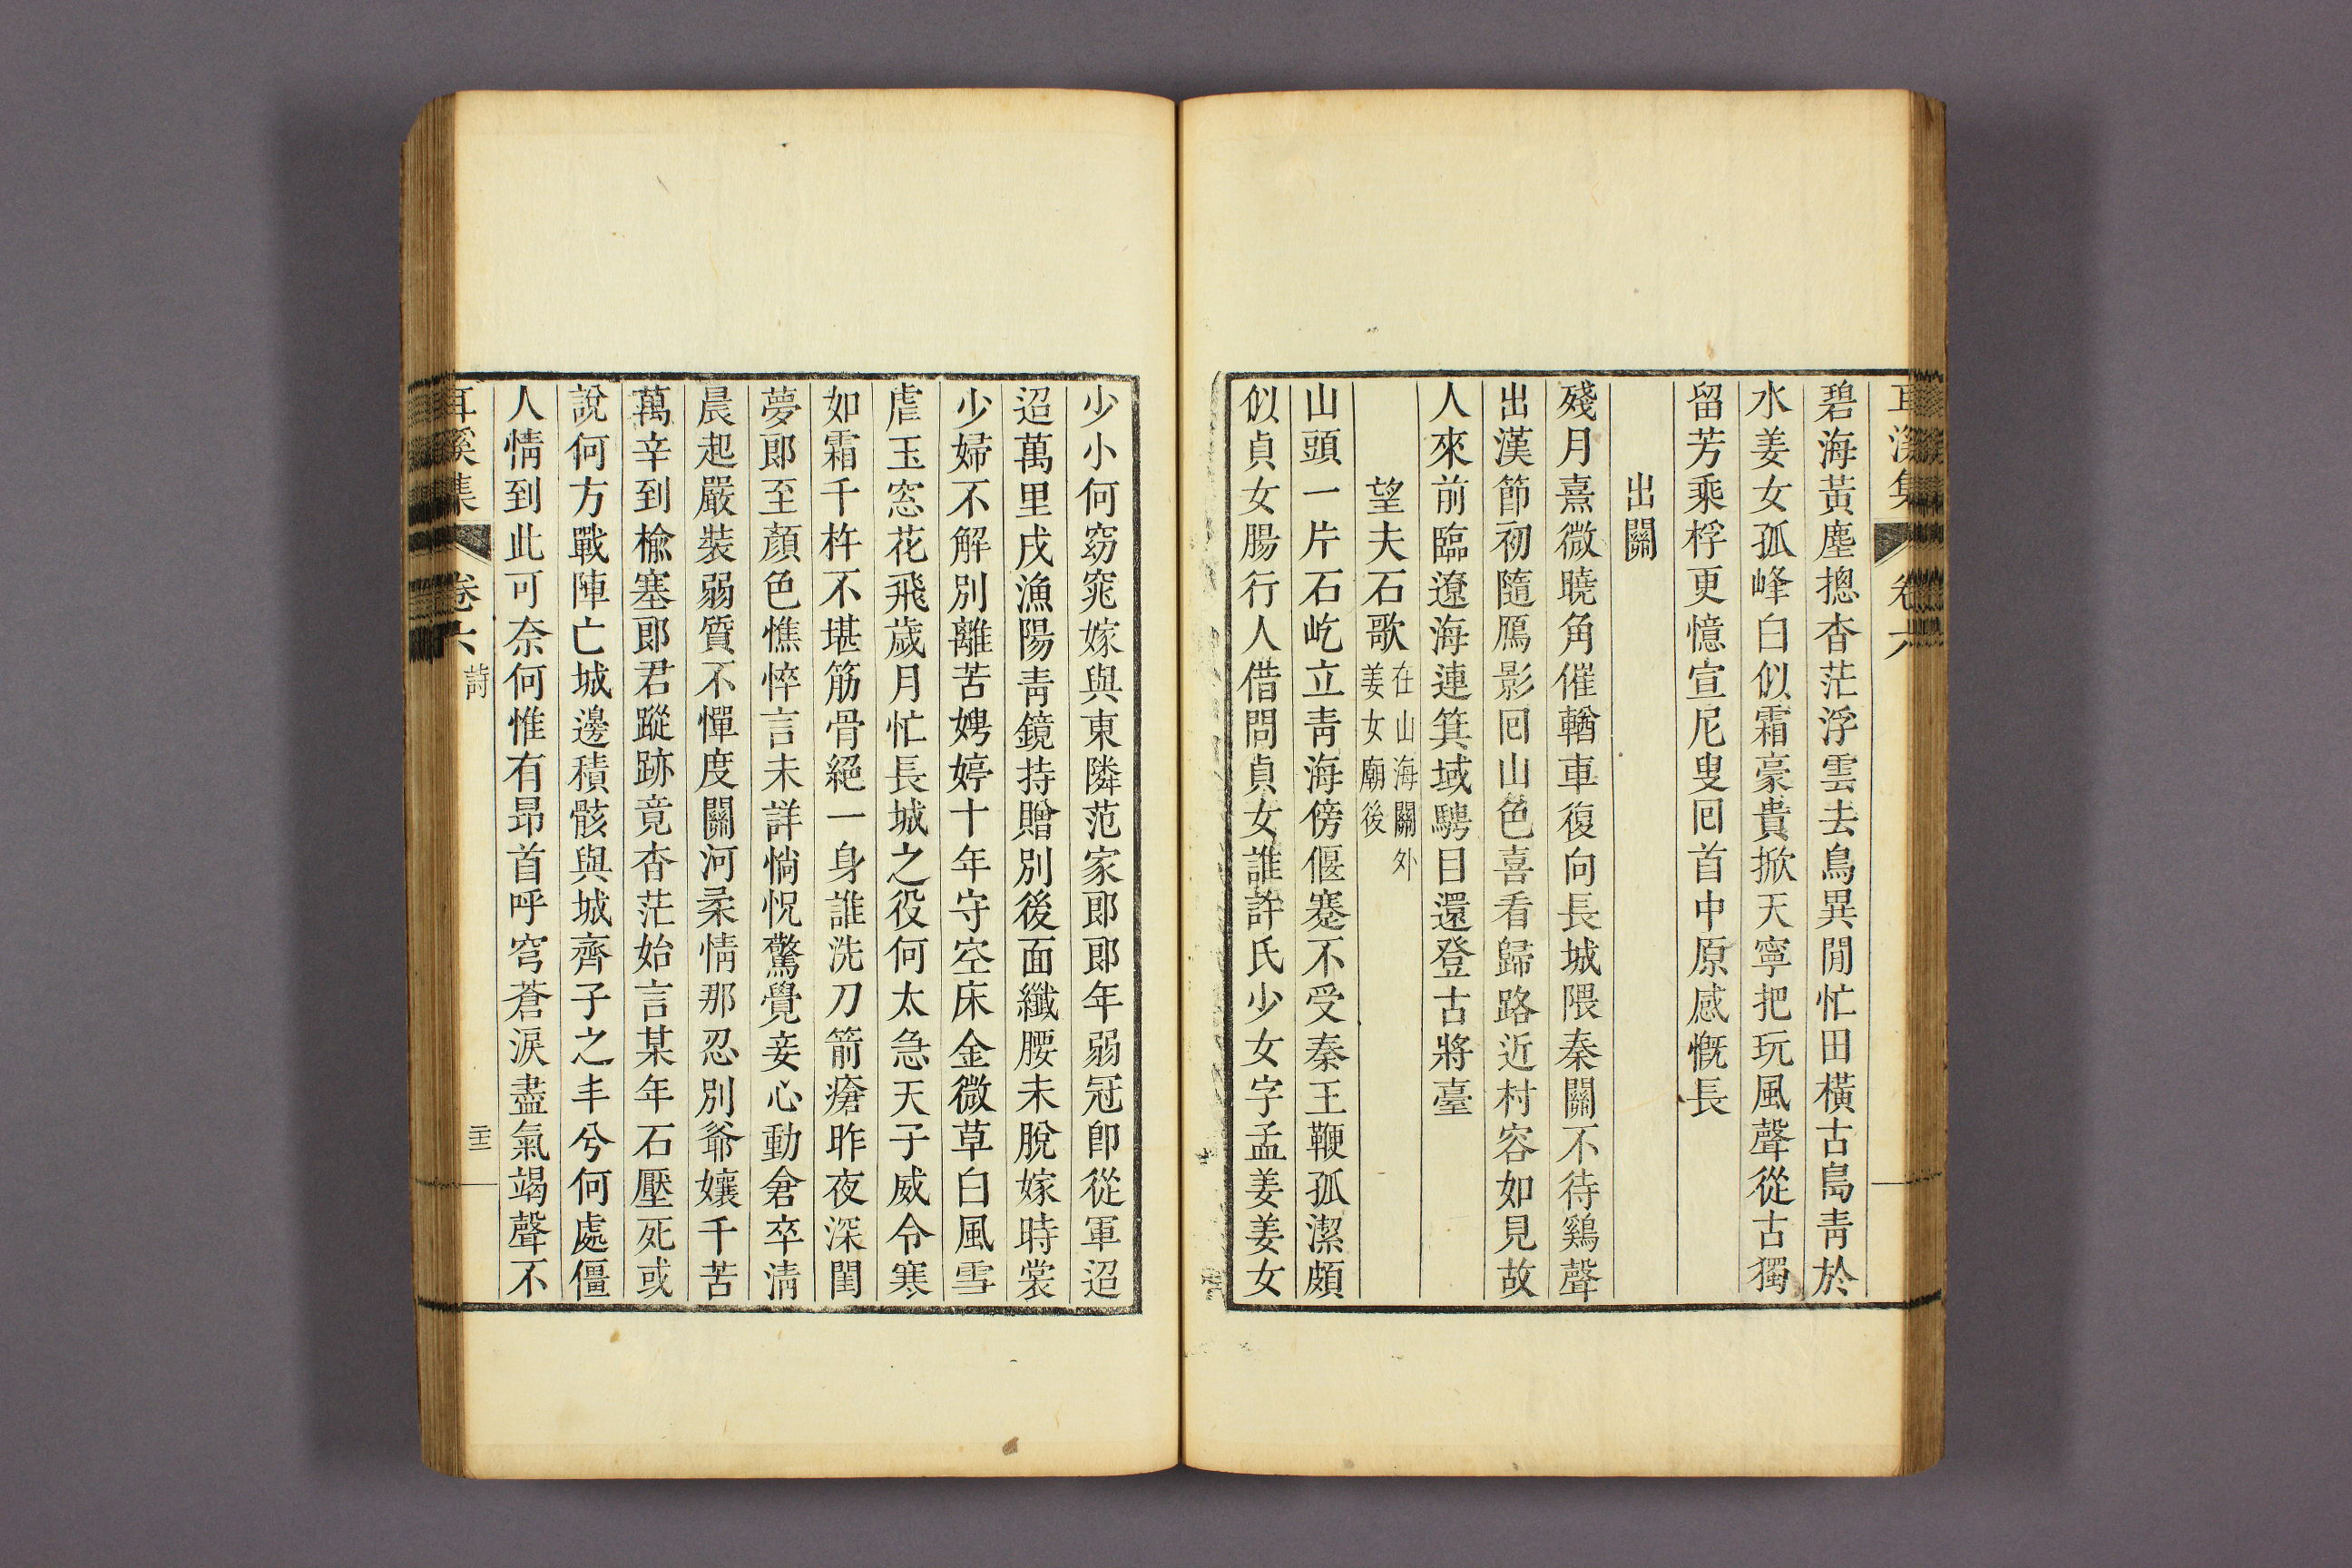 耳溪集 卷六
碧海黃塵摠杳茫浮雲去鳥異閒忙田橫古島靑於
水姜女孤峰白似霜豪貴掀天寧把玩風聲從古獨
留芳乘桴更憶宣尼叟回首中原感慨長
出關
殘月熹微曉角催輶車復向長城隈秦關不待鷄聲
出漢節初隨鴈影回山色喜看歸路近村容如見故
人來前臨遼海連箕域騁目還登古將臺
望夫石歌 在山海關外
姜女廟後
山頭一片石屹立靑海傍偃蹇不受秦王鞭孤潔頗
似貞女腸行人借問貞女誰許氏少女字孟姜姜女
少小何窈窕嫁與東隣范家郎郎年弱冠卽從軍迢
迢萬里戌漁陽靑鏡持贈別後面纖腰未脫嫁時裳
少婦不解別離苦娉婷十年守空床金微草白風雪
虐玉窓花飛歲月忙長城之役何太急天子威令寒
如霜千杵不堪筋骨絕一身誰洗刀箭瘡昨夜深閨
夢郎至顏色憔悴言未詳惝怳驚覺妾心動倉卒淸
晨起嚴裝弱質不憚度關河柔情那忍別爺孃千苦
萬辛到楡塞郎君蹤跡竟杳茫始言某年石壓死或
說何方戰陣亡城邊積骸與城齊子之丰兮何處僵
人情到此可奈何惟有昻首呼穹蒼淚盡氣竭聲不
耳溪集 卷六 詩 二十二